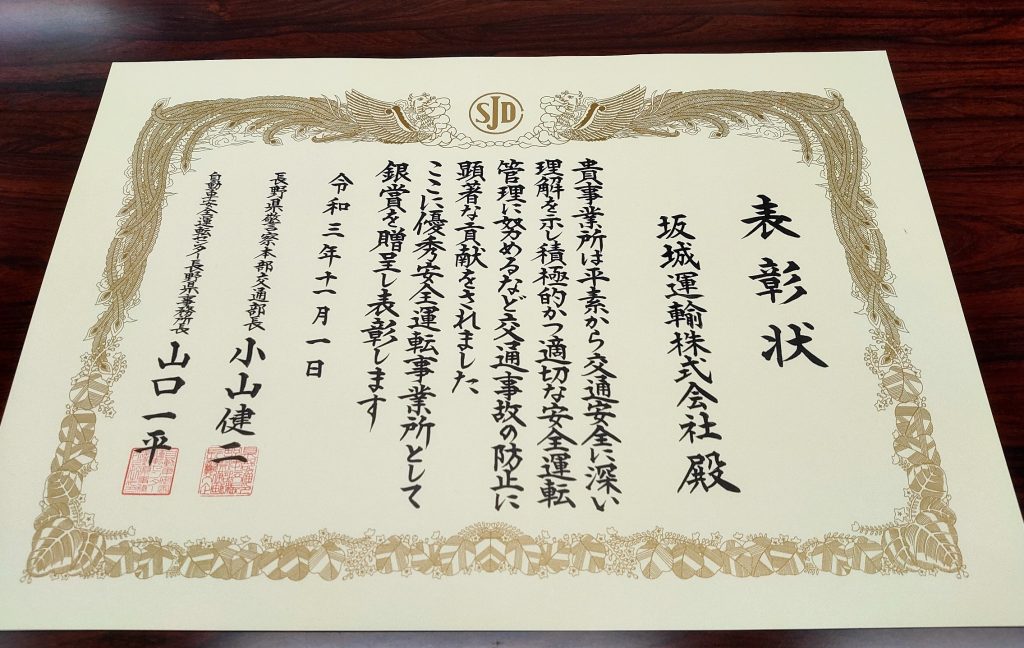 SJD
表彰状
坂城運輸株式会社 殿
貴事業所は平素から交通安全に深い
理解を示し積極的かつ適切な安全運転
管理に努めるなど交通事故の防止に
顕著な貢献をされました
ここに優秀安全運転事業所として
銀賞を贈呈し表彰します
令和三年十一月一日
長野県警察本部交通部長 小山健二
自動車安全運転センター長野県事務所長 山口一平